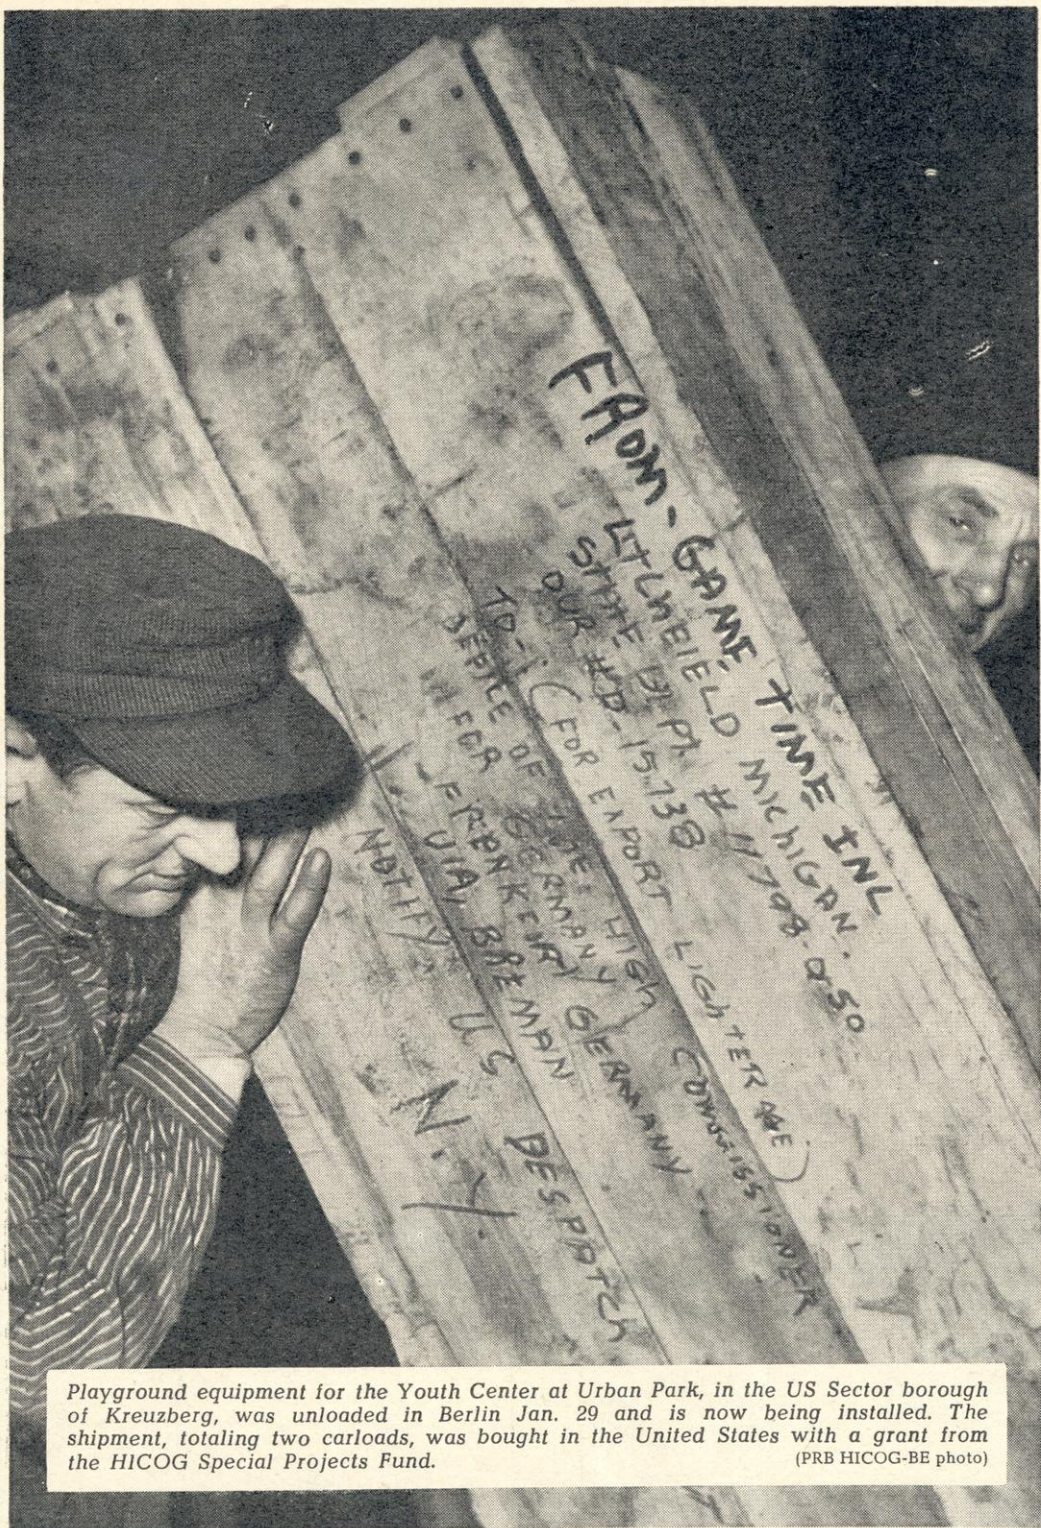 FROM - GAME TIME INC
LITCHFIELD MICHIGAN.
STATE DEPT # 11798-050
OUR # D-15738
(FOR EXPORT LIGHTERAGE)
TO - OFFICE OF THE HIGH COMMISSIONER
FOR GERMANY
FRANKFURT GERMANY
VIA BREMAN
NOTIFY U S DESPATCH
N.Y.
Playground equipment for the Youth Center at Urban Park, in the US Sector borough
of Kreuzberg, was unloaded in Berlin Jan. 29 and is now being installed. The
shipment, totaling two carloads, was bought in the United States with a grant from
the HICOG Special Projects Fund. (PRB HICOG-BE photo)